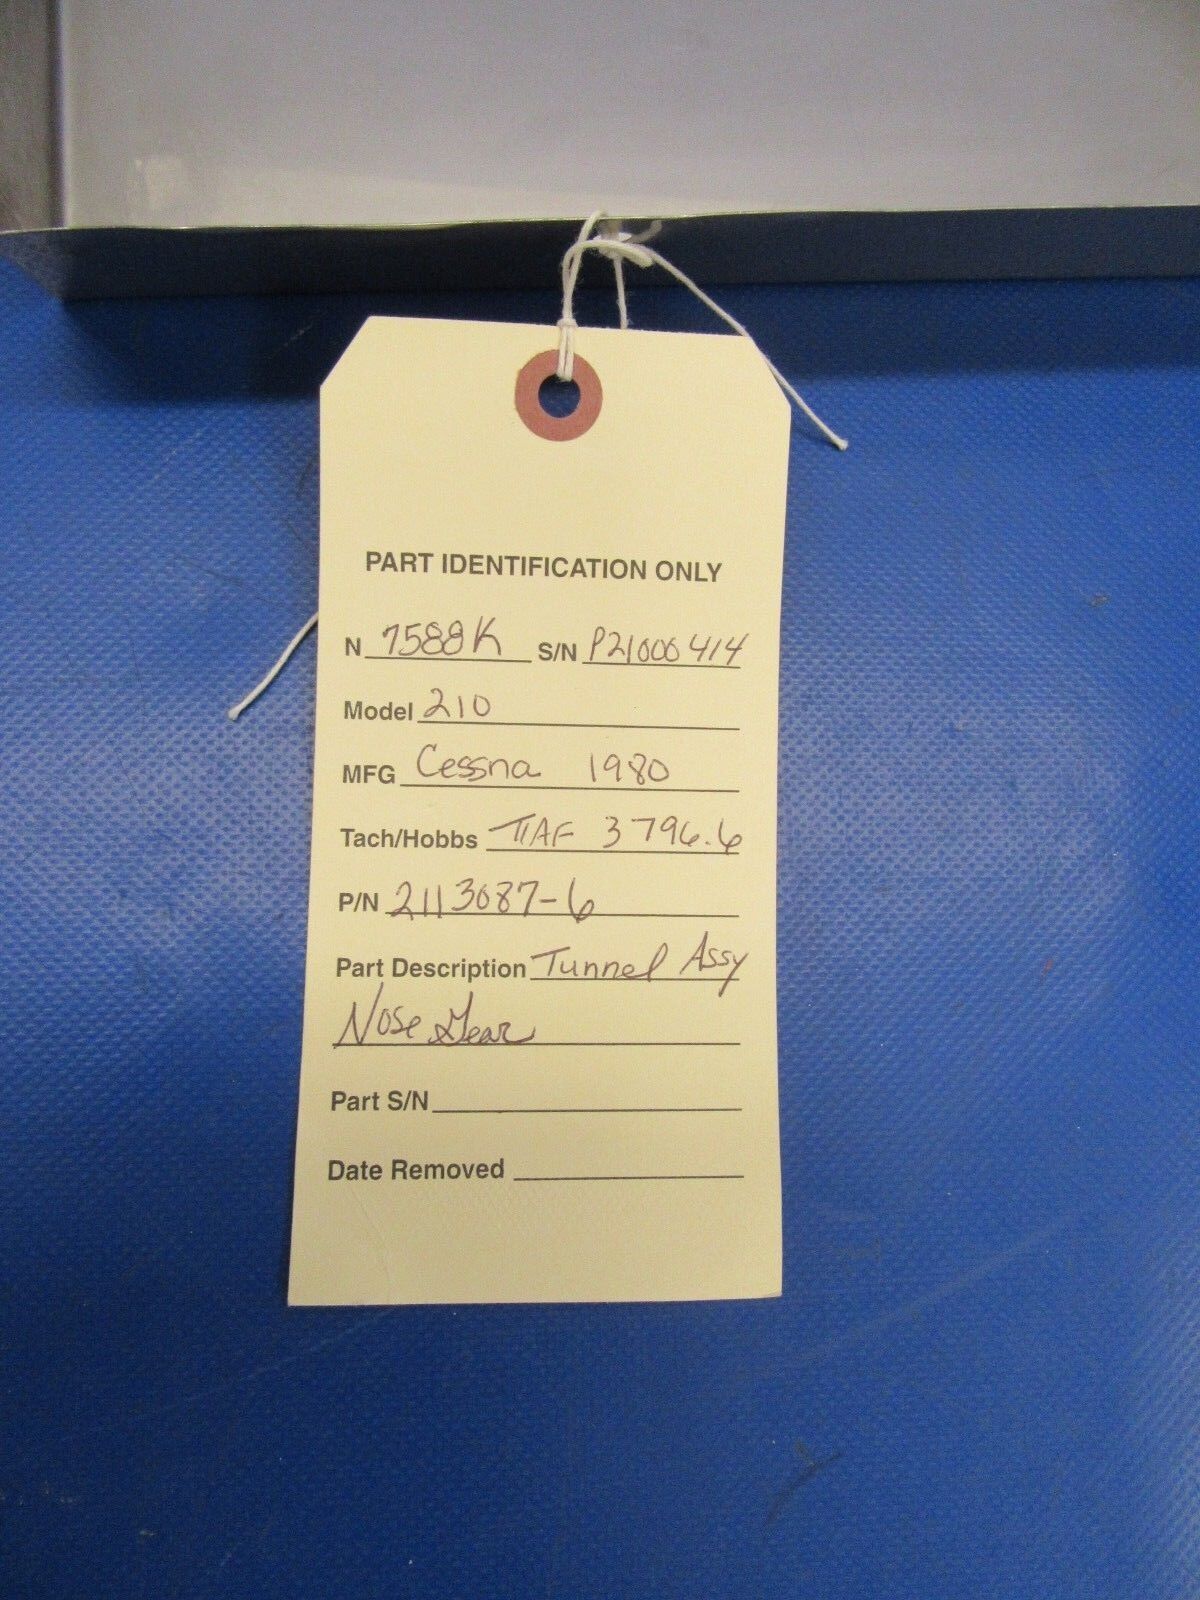 PART IDENTIFICATION ONLY
N 7588K S/N P21000414
Model 210
MFG Cessna 1980
Tach/Hobbs TTAF 3796.6
P/N 2113087-6
Part Description Tunnel Assy
Nose Gear
Part S/N
Date Removed